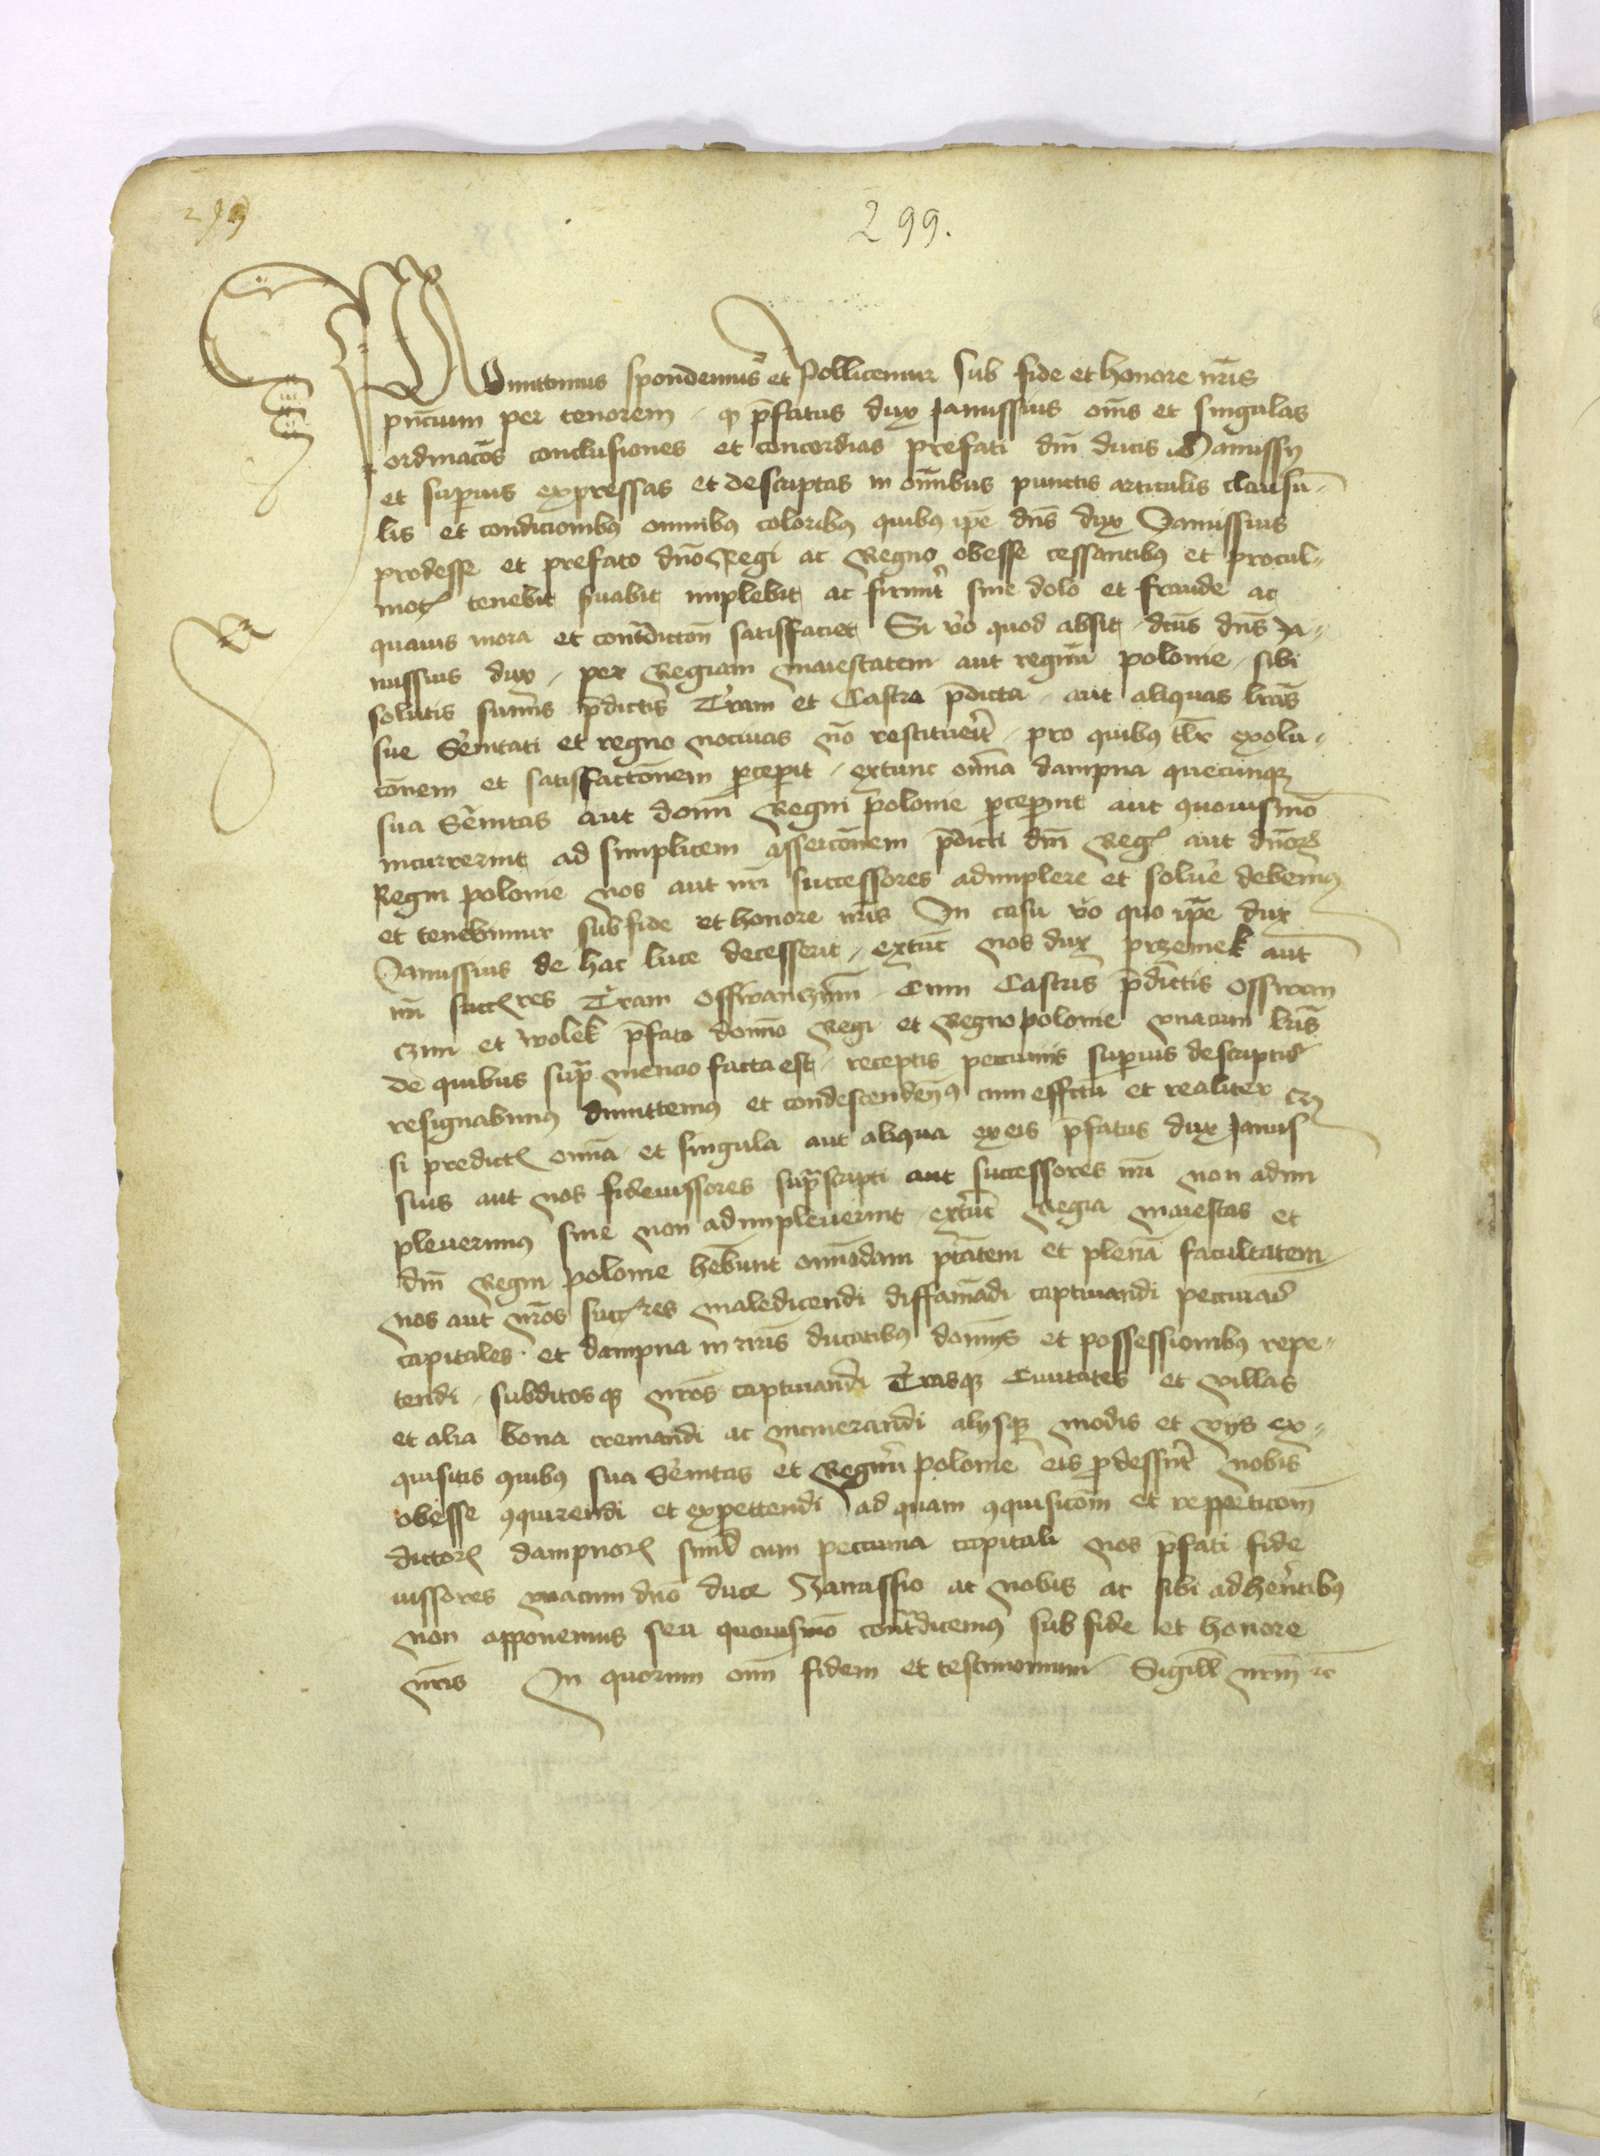 299
299.
Promittimus spondemus et Pollicemur sub fide et honore nr̄is
pn̄cium per tenorem · qͥ p̄fatus dux Janussius om̄s et singulas
ordinacōes conclusiones et concordias prefati dm̄ ducis Janussy
et superius expressas et descriptas in om̄ibus punctis articulis clausu-
lis et condicionibꝰ omnibꝰ coloribꝰ quibꝰ ip̄e dn̄s dux Janussius
prodesse et prefato dn̄o Regi ac Regno obesse cessantibꝰ et procul-
motꝭ tenebit s̄uabit implebit ac firmit̄ sine dolo et fraude ac
quauis mora et cont̄dictōn satisfaciet Si v̄o quod absit dc̄us dn̄s Ja-
nussius dux / per Regiam Maiestatem aut regnū polonie / sibi
solutis sum̄is p̄dictis Tr̄am et Castra p̄dicta / aut aliquas lr̄as
sue S̄enitati et regno nociuas nō restitueīt / pro quibꝰ tlr̄ exolu-
cōnem et satisfactōnem p̄cepit / extunc om̄ia dampna quecunqꝫ
sua S̄enitas aut domī Regni polonie p̄cep̄int aut quouismō
incurrerint ad simplicem assercōnem p̄dicti dm̄ Regꝭ aut dn̄orꝝ
Regni polonie nos aut nr̄i successores adimplere et solu̅e debemꝰ
et tenebimur sub fide et honore nr̄is In casu v̄o quo ip̄e dux
Janussius de hac luce decesserit / extūc nos dux przemek aut
nr̄i succꝭres Tr̄am Osswanczim̄ Cum Castris p̄dictis Osswan
czim et wolek p̄fato domīo Regi et Regno polonie vnacum lr̄is
de quibus sup̄ mencio facta est / receptis peccunis superius descriptis
resignabimꝰ dimittemꝰ et condescendemꝰ cum effcū et realiter Qꝫ
si predictꝭ om̄ia et singula aut aliqua ex eis p̄fatus dux Janus
sius aut nos fideiussores sup̄scripti aut successores nr̄i non adim
pleuerimꝰ siue non adimpleuerint extūc Regia Maiestas et
dm̄ Regni polonie hēbunt om̄imodam ptātem et plenā facultatem
nos aut nr̄os succꝭres maledicendi diffamādi captiuandi peccunias
capitales · et dampna in nr̄is ducatibꝰ dom̄ys et possessionibꝰ repe-
tendi / subditosqꝫ nr̄os captiuandi Tr̄asqꝫ Ciuitates et villas
et alia bona cremandi ac incinerandi alysqꝫ modis et vys ex-
quisitis quibꝰ sua S̄enitas et Regnū polonie eis p̄dessn̄t nobis
obesse ꝯquirendi et expettendi ad quam ꝯquisicōm et repperticōm
dictorꝭ dampnorꝭ simlꝭ cum peccunia capitali nos p̄fati fide
iussores vnacum dn̄o duce Janussio ac nobis ac sibi adhērtibꝰ
non opponemus seu quouismō cont̄dicemꝰ sub fide et honore
nr̄is In quorum om̄i fidem et testimonium Sigill̄ nr̄m ꝛc